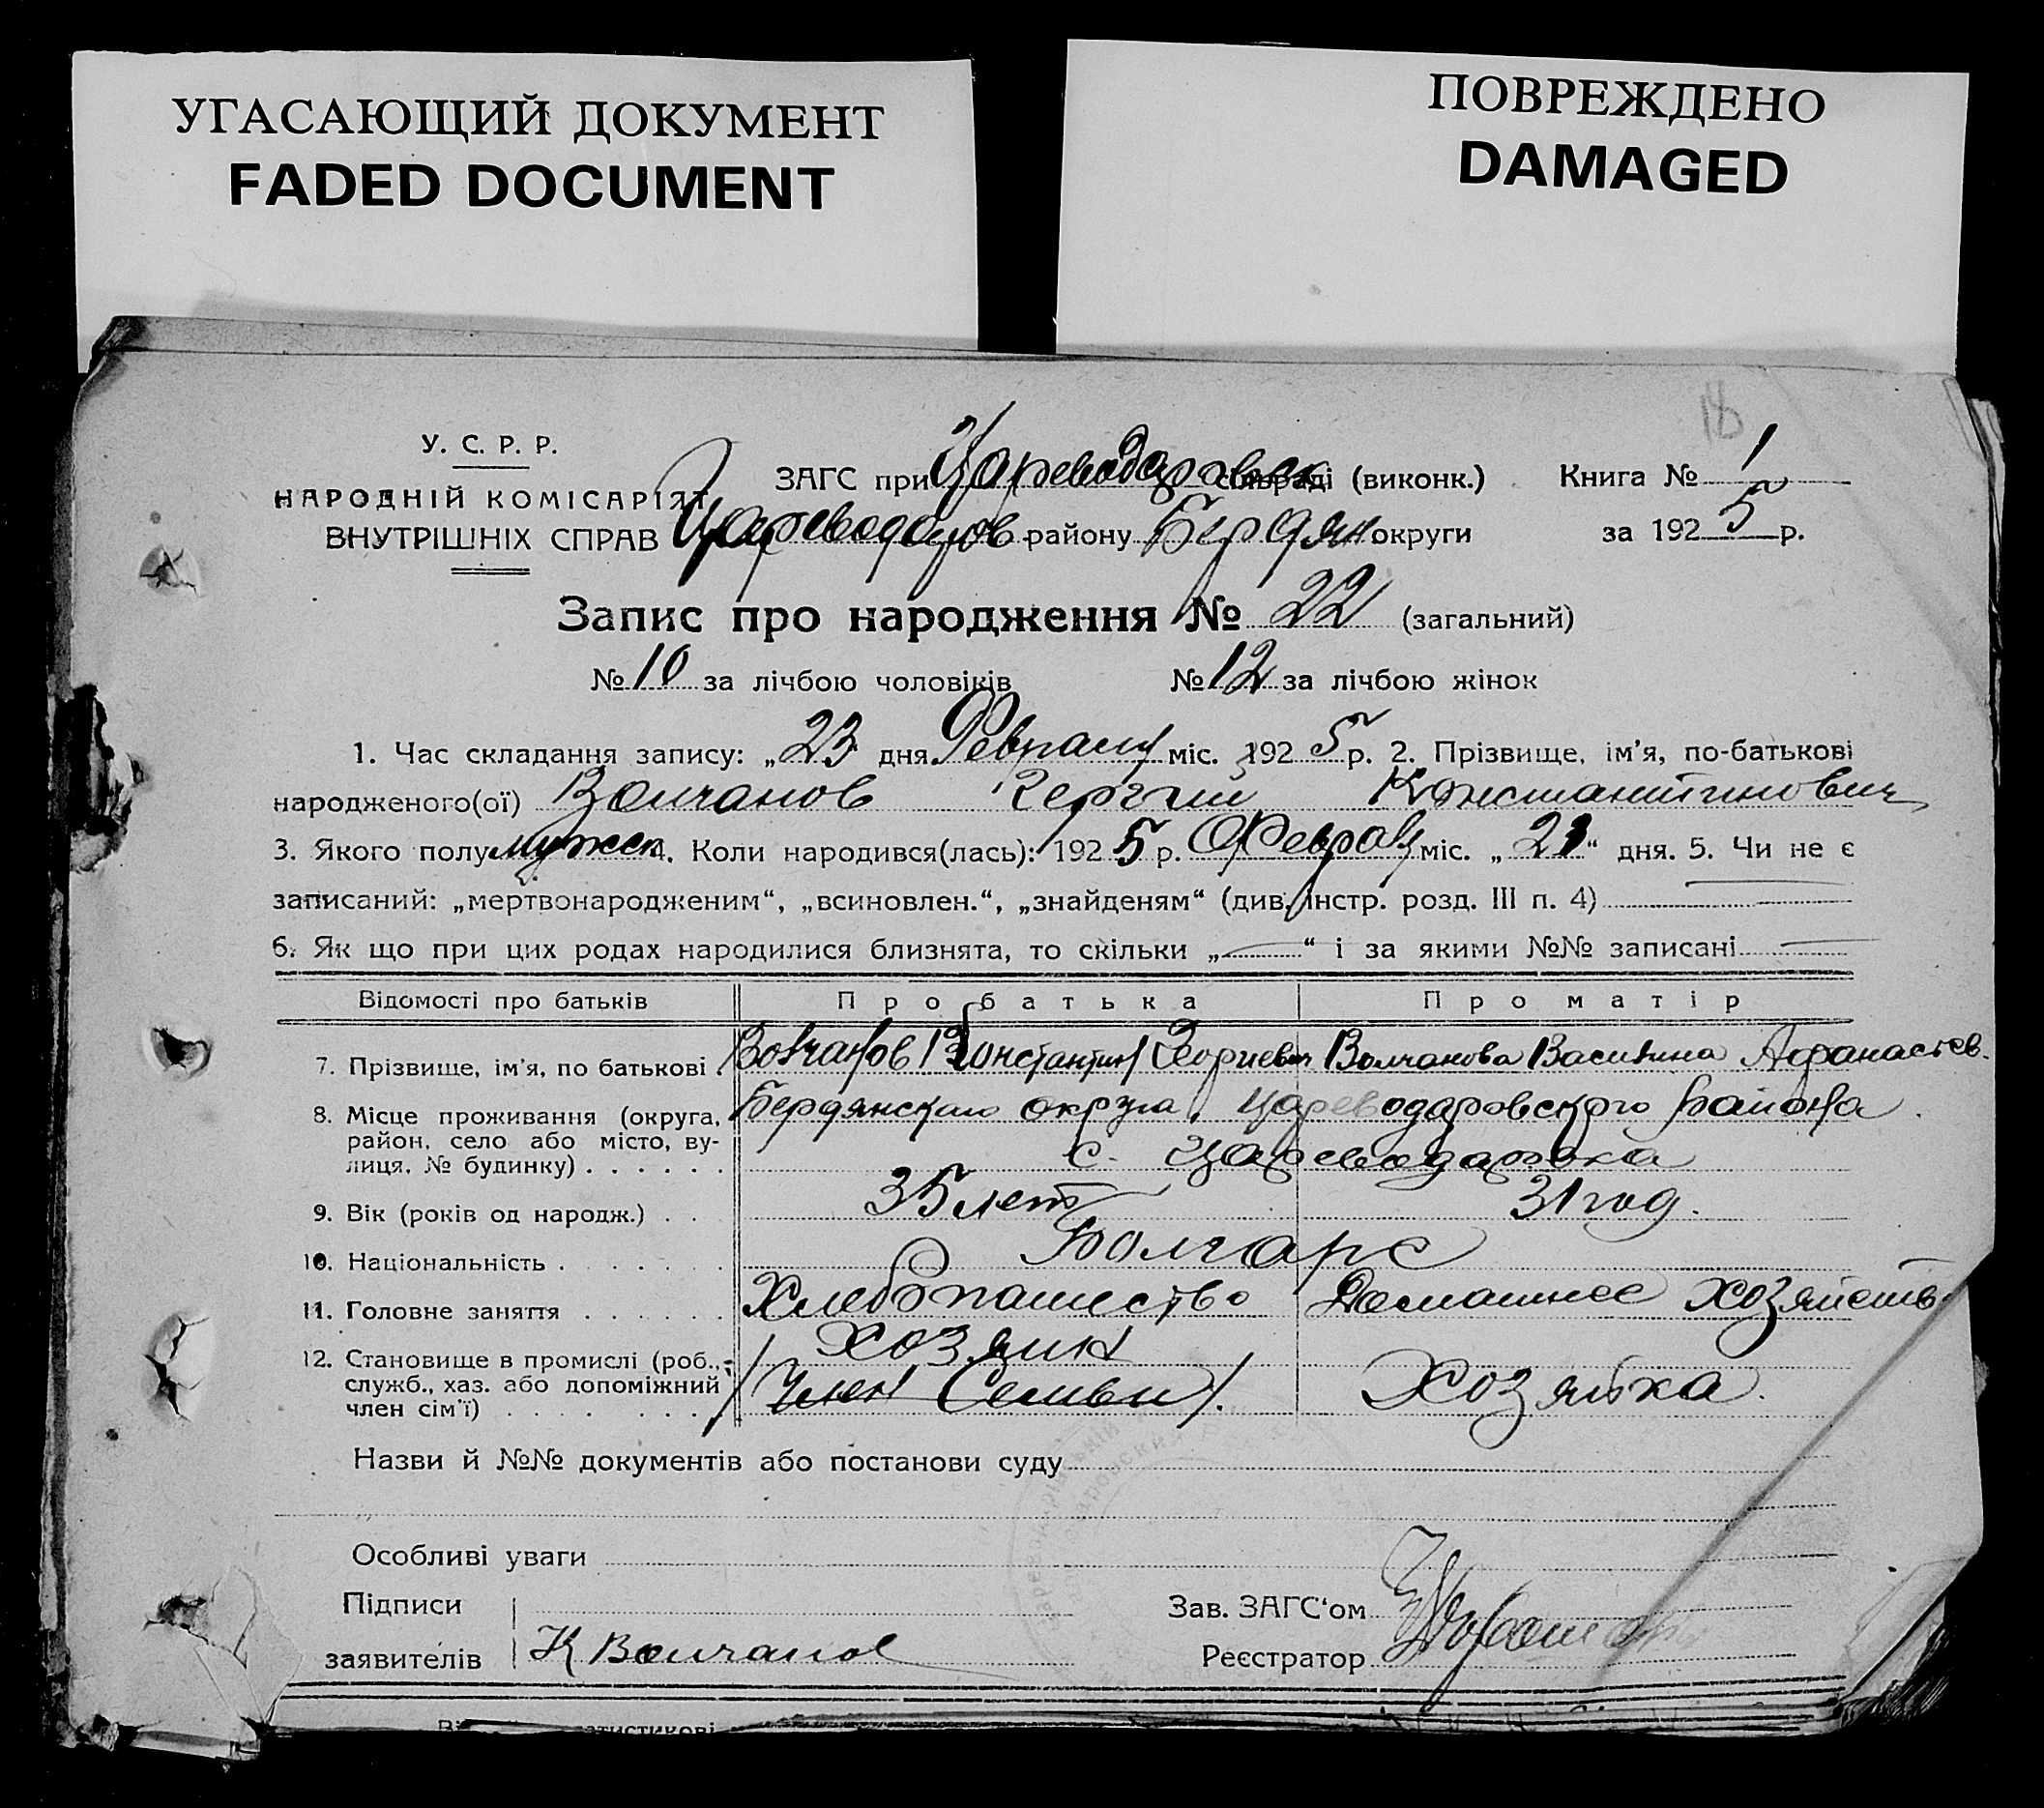 УГАСАЮЩИЙ ДОКУМЕНТ
FADED DOCUMENT
ПОВРЕЖДЕНО
DAMAGED
У. С. Р. Р.
НАРОДНІЙ КОМІСАРІЯТ
ВНУТРІШНІХ СПРАВ
ЗАГС при Цареводаровск сільраді (виконк.) Книга № 1
Цареводаров. району Бердян. округи за 1925 р.
Запис про народження № 22 (загальний)
№ 10 за лічбою чоловіків № 12 за лічбою жінок
1. Час складання запису: „23 дня Февраля міс. 1925 р. 2. Прізвище, ім'я, по-батькові
народженого(ої) Волчанов Сергей Константинович
3. Якого полу мужск 4. Коли народився(лась): 1925 р. Февраля міс. „21“ дня. 5. Чи не є
записаний: „мертвонародженим“, „всиновлен.“, „знайденям“ (див. інстр. розд. III п. 4)
6. Як що при цих родах народилися близнята, то скільки „—“ і за якими №№ записані —
Відомості про батьків Про батька Про матір
7. Прізвище, ім'я, по батькові. Волчанов Константин Георгиевич Волчанова Василина Афанасьев.
8. Місце проживання (округа, Бердянскаго округа, Цареводаровского района.
район, село або місто, ву-
лиця, № будинку) . . . . . . с. Цареводаровка
9. Вік (років од народж.) . . 35 лет 31 год.
10. Національність . . . . . . . Болгаре
11. Головне заняття . . . . . . Хлебопашество Домашнее хозяйств
12. Становище в промислі (роб., Хозяин
служб., хаз. або допоміжний /Член Семьи/. Хозяйка.
член сім'ї) . . . . . . .
Назви й №№ документів або постанови суду
Особливі уваги
Підписи Зав. ЗАГС'ом
заявителів К Волчанов Реєстратор